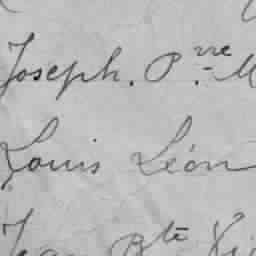 Joseph. P.rre M
Louis Léon
Jean Bte